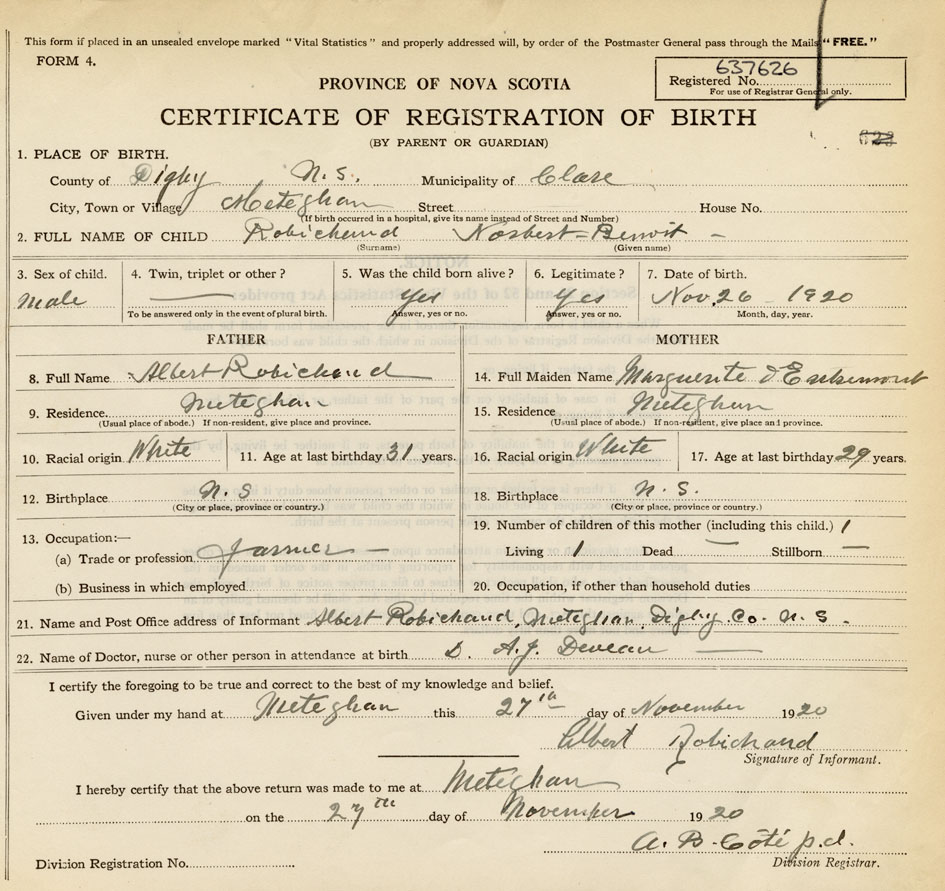 This form if placed in an unsealed envelope marked "Vital Statistics" and properly addressed will, by order of the Postmaster General pass through the Mails "FREE."
FORM 4.
637626
Registered No.
For use of Registrar General only.
PROVINCE OF NOVA SCOTIA
CERTIFICATE OF REGISTRATION OF BIRTH
(BY PARENT OR GUARDIAN)
1. PLACE OF BIRTH.
County of Digby N.S. Municipality of Clare
City, Town or Village Meteghan Street House No.
(If birth occurred in a hospital, give its name instead of Street and Number)
2. FULL NAME OF CHILD Robichaud Norbert=Benoit -
(Surname) (Given name)
3. Sex of child. 4. Twin, triplet or other? 5. Was the child born alive? 6. Legitimate? 7. Date of birth.
Male — Yes Yes Nov. 26 - 1920
To be answered only in the event of plural birth. Answer, yes or no. Answer, yes or no. Month, day, year.
FATHER MOTHER
8. Full Name Albert Robichaud 14. Full Maiden Name Marguerite
9. Residence Meteghan 15. Residence Meteghan
(Usual place of abode.) If non-resident, give place and province. (Usual place of abode.) If non-resident, give place and province.
10. Racial origin White 11. Age at last birthday 31 years. 16. Racial origin White 17. Age at last birthday 29 years.
12. Birthplace N.S 18. Birthplace N.S.
(City or place, province or country.) (City or place, province or country.)
19. Number of children of this mother (including this child.) 1
13. Occupation:—
(a) Trade or profession Farmer — Living 1 Dead — Stillborn —
(b) Business in which employed 20. Occupation, if other than household duties
21. Name and Post Office address of Informant Albert Robichaud, Meteghan, Digby Co. N.S.
22. Name of Doctor, nurse or other person in attendance at birth D. A.J. Deveau —
I certify the foregoing to be true and correct to the best of my knowledge and belief.
Given under my hand at Meteghan this 27th day of November 1920
Albert Robichaud
Signature of Informant.
I hereby certify that the above return was made to me at Meteghan
on the 27th day of November 1920
A. B. Côté p.d.
Division Registrar.
Division Registration No.